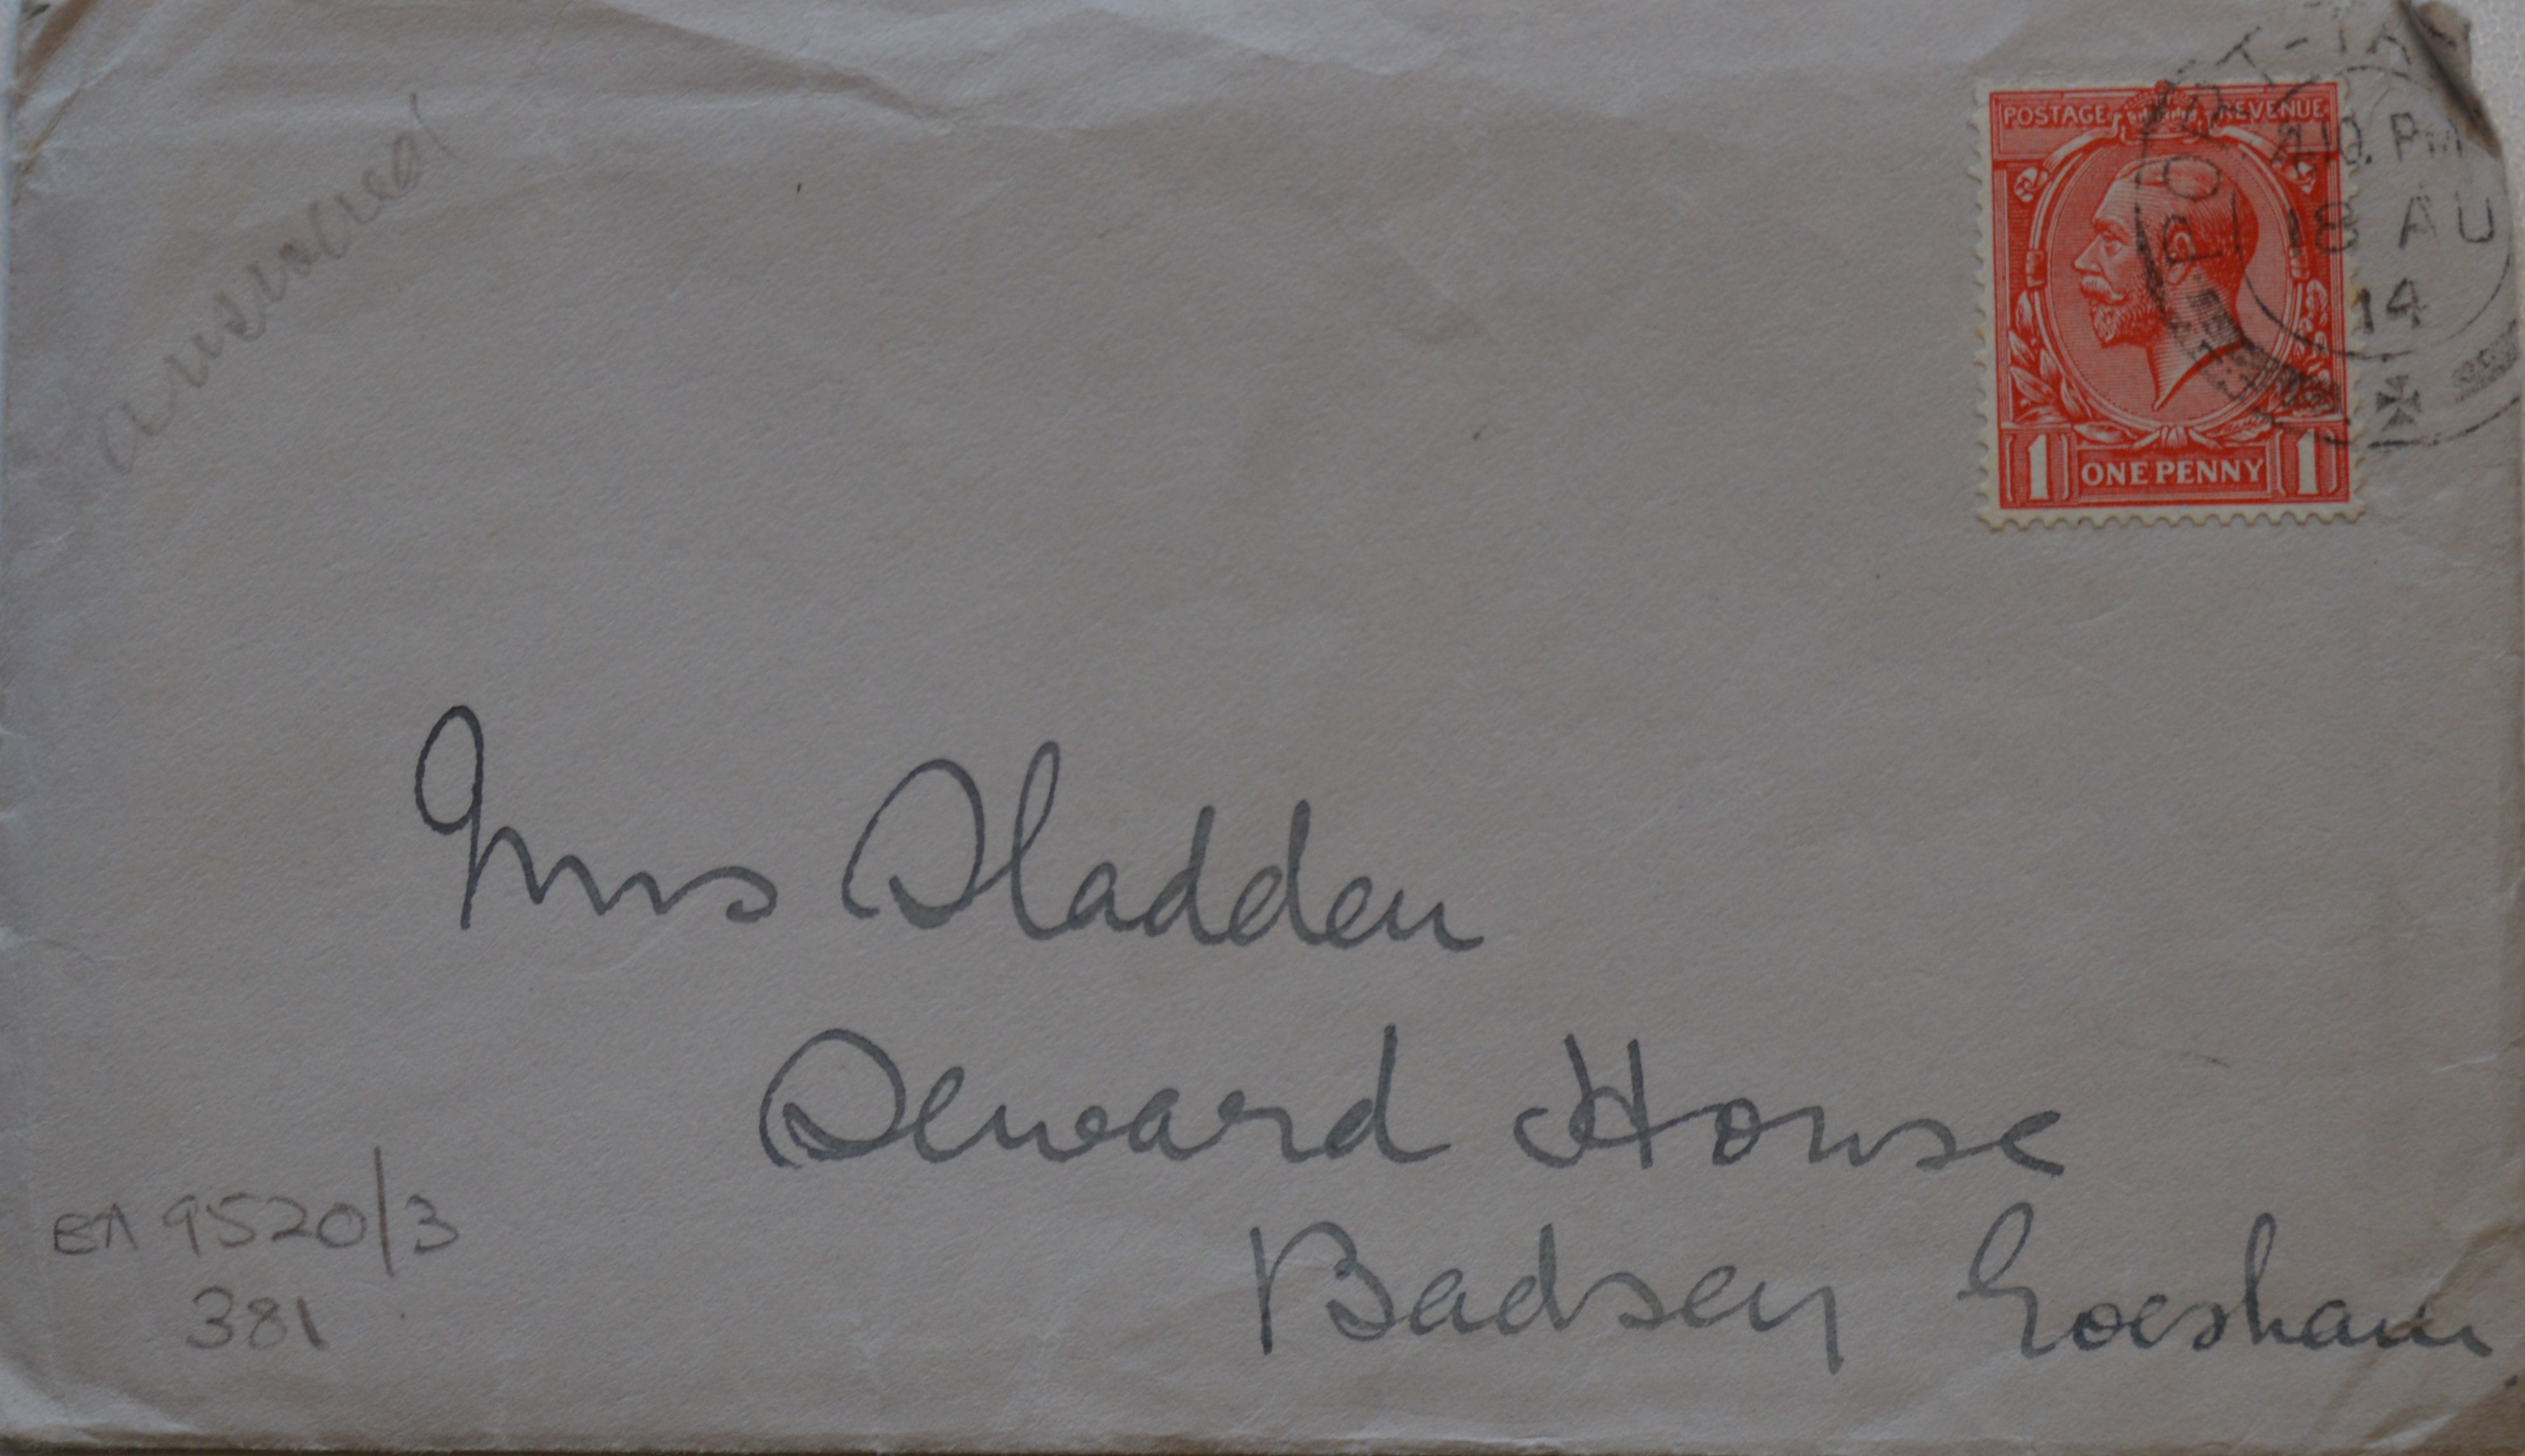 answered
POSTAGE REVENUE
PORT-TA
PM
18 AU
14
1 ONE PENNY 1
Mrs Sladden
Seward House
Badsey Evesham
EA 9520/3
381